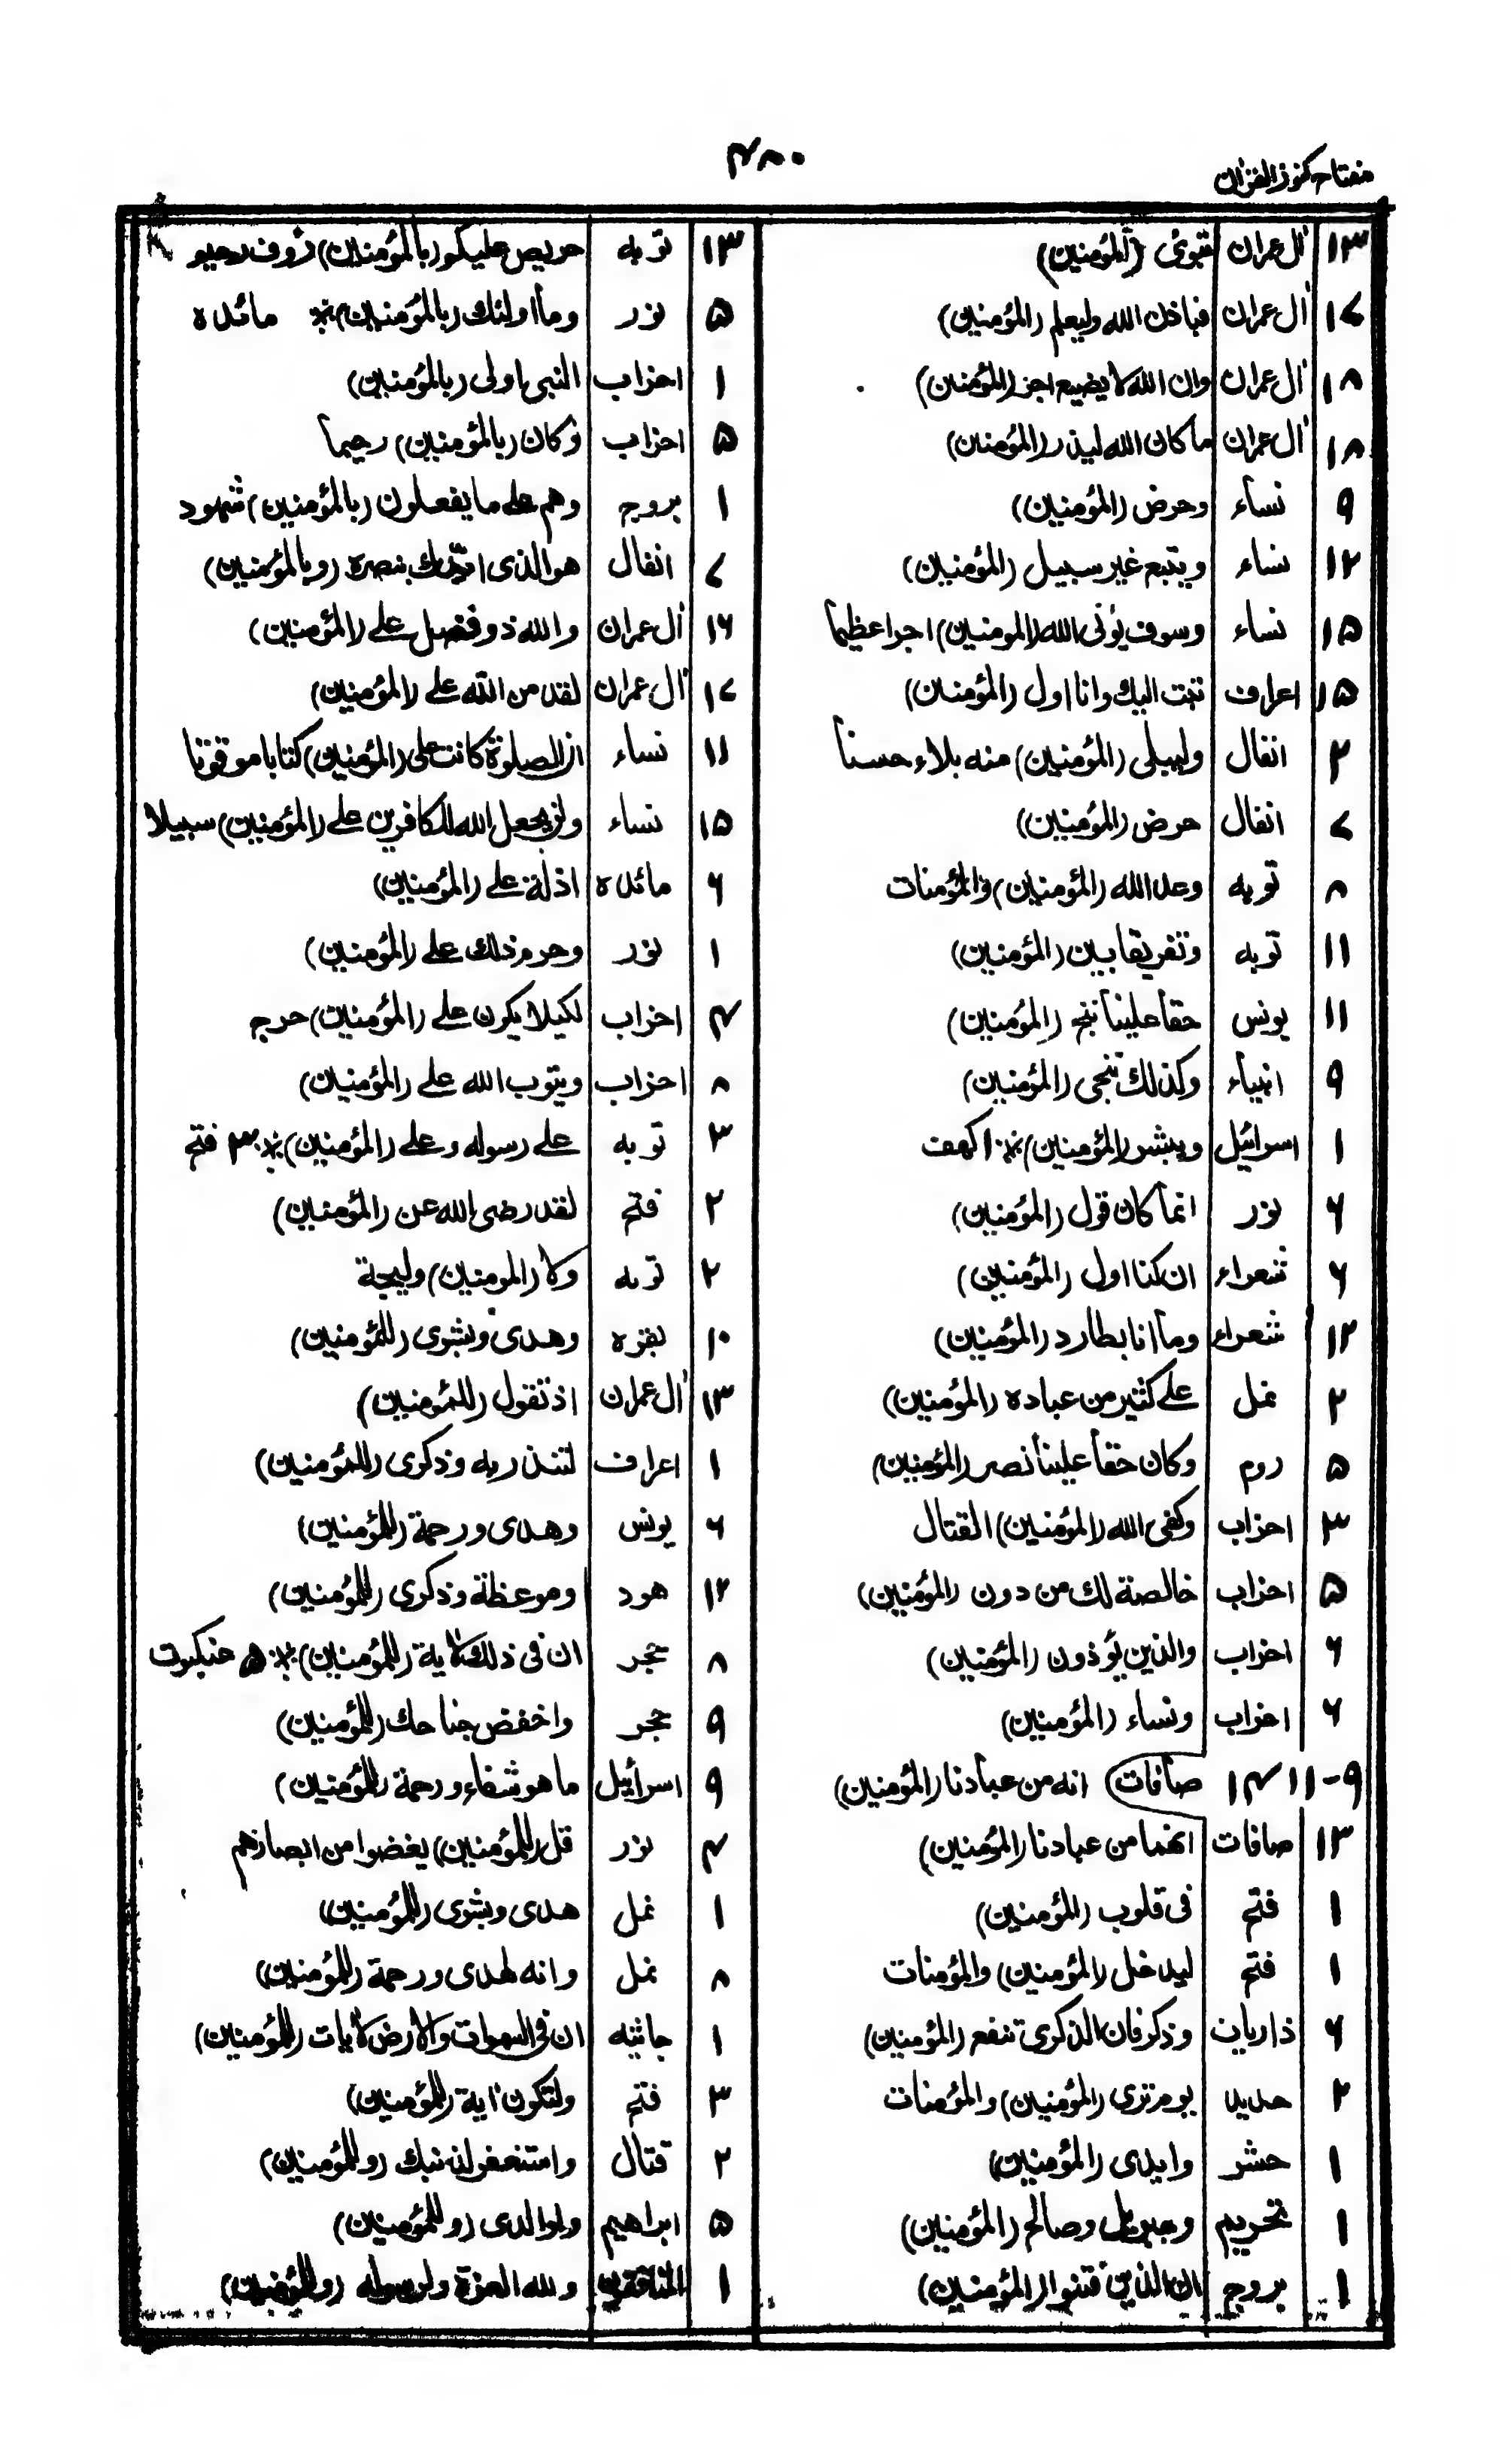 ۴۸۰
مفتاح کنوز القران
۱۳ اٰل عمران تبوئ (المؤمنین)
۱۷ اٰل عمران فباذن الله ولیعلم (المؤمنین)
۱۸ اٰل عمران وان الله لا یضیع اجر (المؤمنین)
۱۸ اٰل عمران ما کان الله لیذر (المؤمنین)
۹ نساء وحرض (المؤمنین)
۱۲ نساء ویتبع غیر سبیل (المؤمنین)
۱۵ نساء وسوف یؤتی الله (المومنین) اجرا عظیما
۱۵ اعراف تبت الیك وانا اول (المؤمنین)
۲ انفال ولیبلی (المؤمنین) منه بلاء حسنا
۷ انفال حرض (المؤمنین)
۸ توبه وعد الله (المؤمنین) والمؤمنات
۱۱ توبه وتفریقا بین (المؤمنین)
۱۱ یونس حقا علینا ننج (المؤمنین)
۹ انبیاء وکذلك ننجی (المؤمنین)
۱ اسرائیل ویبشر (المؤمنین) ۱ کهف
۶ نور انما کان قول (المؤمنین)
۶ شعراء ان کنا اول (المؤمنین)
۱۲ شعراء وما انا بطارد (المؤمنین)
۲ نمل علے کثیر من عباده (المؤمنین)
۵ روم وکان حقا علینا نصر (المؤمنین)
۳ احزاب وکفی الله (المؤمنین) القتال
۵ احزاب خالصة لك من دون (المؤمنین)
۶ احزاب والذین یؤذون (المؤمنین)
۶ احزاب ونساء (المؤمنین)
۹-۱۱ ۱۴ صافات انه من عبادنا (المؤمنین)
۱۳ صافات انهما من عبادنا (المؤمنین)
۱ فتح فی قلوب (المؤمنین)
۱ فتح لیدخل (المؤمنین) والمؤمنات
۶ ذاریات وذکر فان الذکری تنفع (المؤمنین)
۲ حدید یوم تری (المؤمنین) والمؤمنات
۱ حشر وایدی (المؤمنین)
۱ تحریم وجبریل وصالح (المؤمنین)
۱ بروج ان الذین فتنوا (المؤمنین)
۱۳ توبه حریص علیکم (بالمؤمنین) رؤف رحیم
۵ نور وما اولئك (بالمؤمنین) مائده
۱ احزاب النبی اولی (بالمؤمنین)
۵ احزاب وکان (بالمؤمنین) رحیما
۱ بروج وهم علے ما یفعلون (بالمؤمنین) شهود
۷ انفال هو الذی ایدك بنصره (وبالمؤمنین)
۱۶ اٰل عمران والله ذو فضل علے (المؤمنین)
۱۷ اٰل عمران لقد من الله علے (المؤمنین)
۱۱ نساء ان الصلوة کانت علی (المؤمنین) کتابا موقوتا
۱۵ نساء ولن یجعل الله للکافرین علے (المؤمنین) سبیلا
۶ مائده اذلة علے (المؤمنین)
۱ نور وحرم ذلك علے (المؤمنین)
۴ احزاب لکیلا یکون علے (المؤمنین) حرج
۸ احزاب ویتوب الله علے (المؤمنین)
۳ توبه علے رسوله وعلے (المؤمنین) ۳ فتح
۲ فتح لقد رضی الله عن (المؤمنین)
۲ توبه ولا (المومنین) ولیجة
۱۰ بقره وهدی وبشری (للمؤمنین)
۱۳ اٰل عمران اذ تقول (للمؤمنین)
۱ اعراف لتنذر به وذکری (للمؤمنین)
۶ یونس وهدی ورحمة (للمؤمنین)
۱۲ هود وموعظة وذکری (للمؤمنین)
۸ حجر ان فی ذلك لایة (للمؤمنین) عنکبوت
۹ حجر واخفض جناحك (للمؤمنین)
۹ اسرائیل ما هو شفاء ورحمة (للمؤمنین)
۴ نور قل (للمؤمنین) یغضوا من ابصارهم
۱ نمل هدی وبشری (للمؤمنین)
۸ نمل وانه لهدی ورحمة (للمؤمنین)
۱ جاثیه ان فی السموات والارض لایات (للمؤمنین)
۳ فتح ولتکون اٰیة (للمؤمنین)
۲ قتال واستغفر لذنبك (وللمؤمنین)
۵ ابراهیم ولوالدی (وللمؤمنین)
۱ المنافقون ولله العزة ولرسوله (وللمؤمنین)